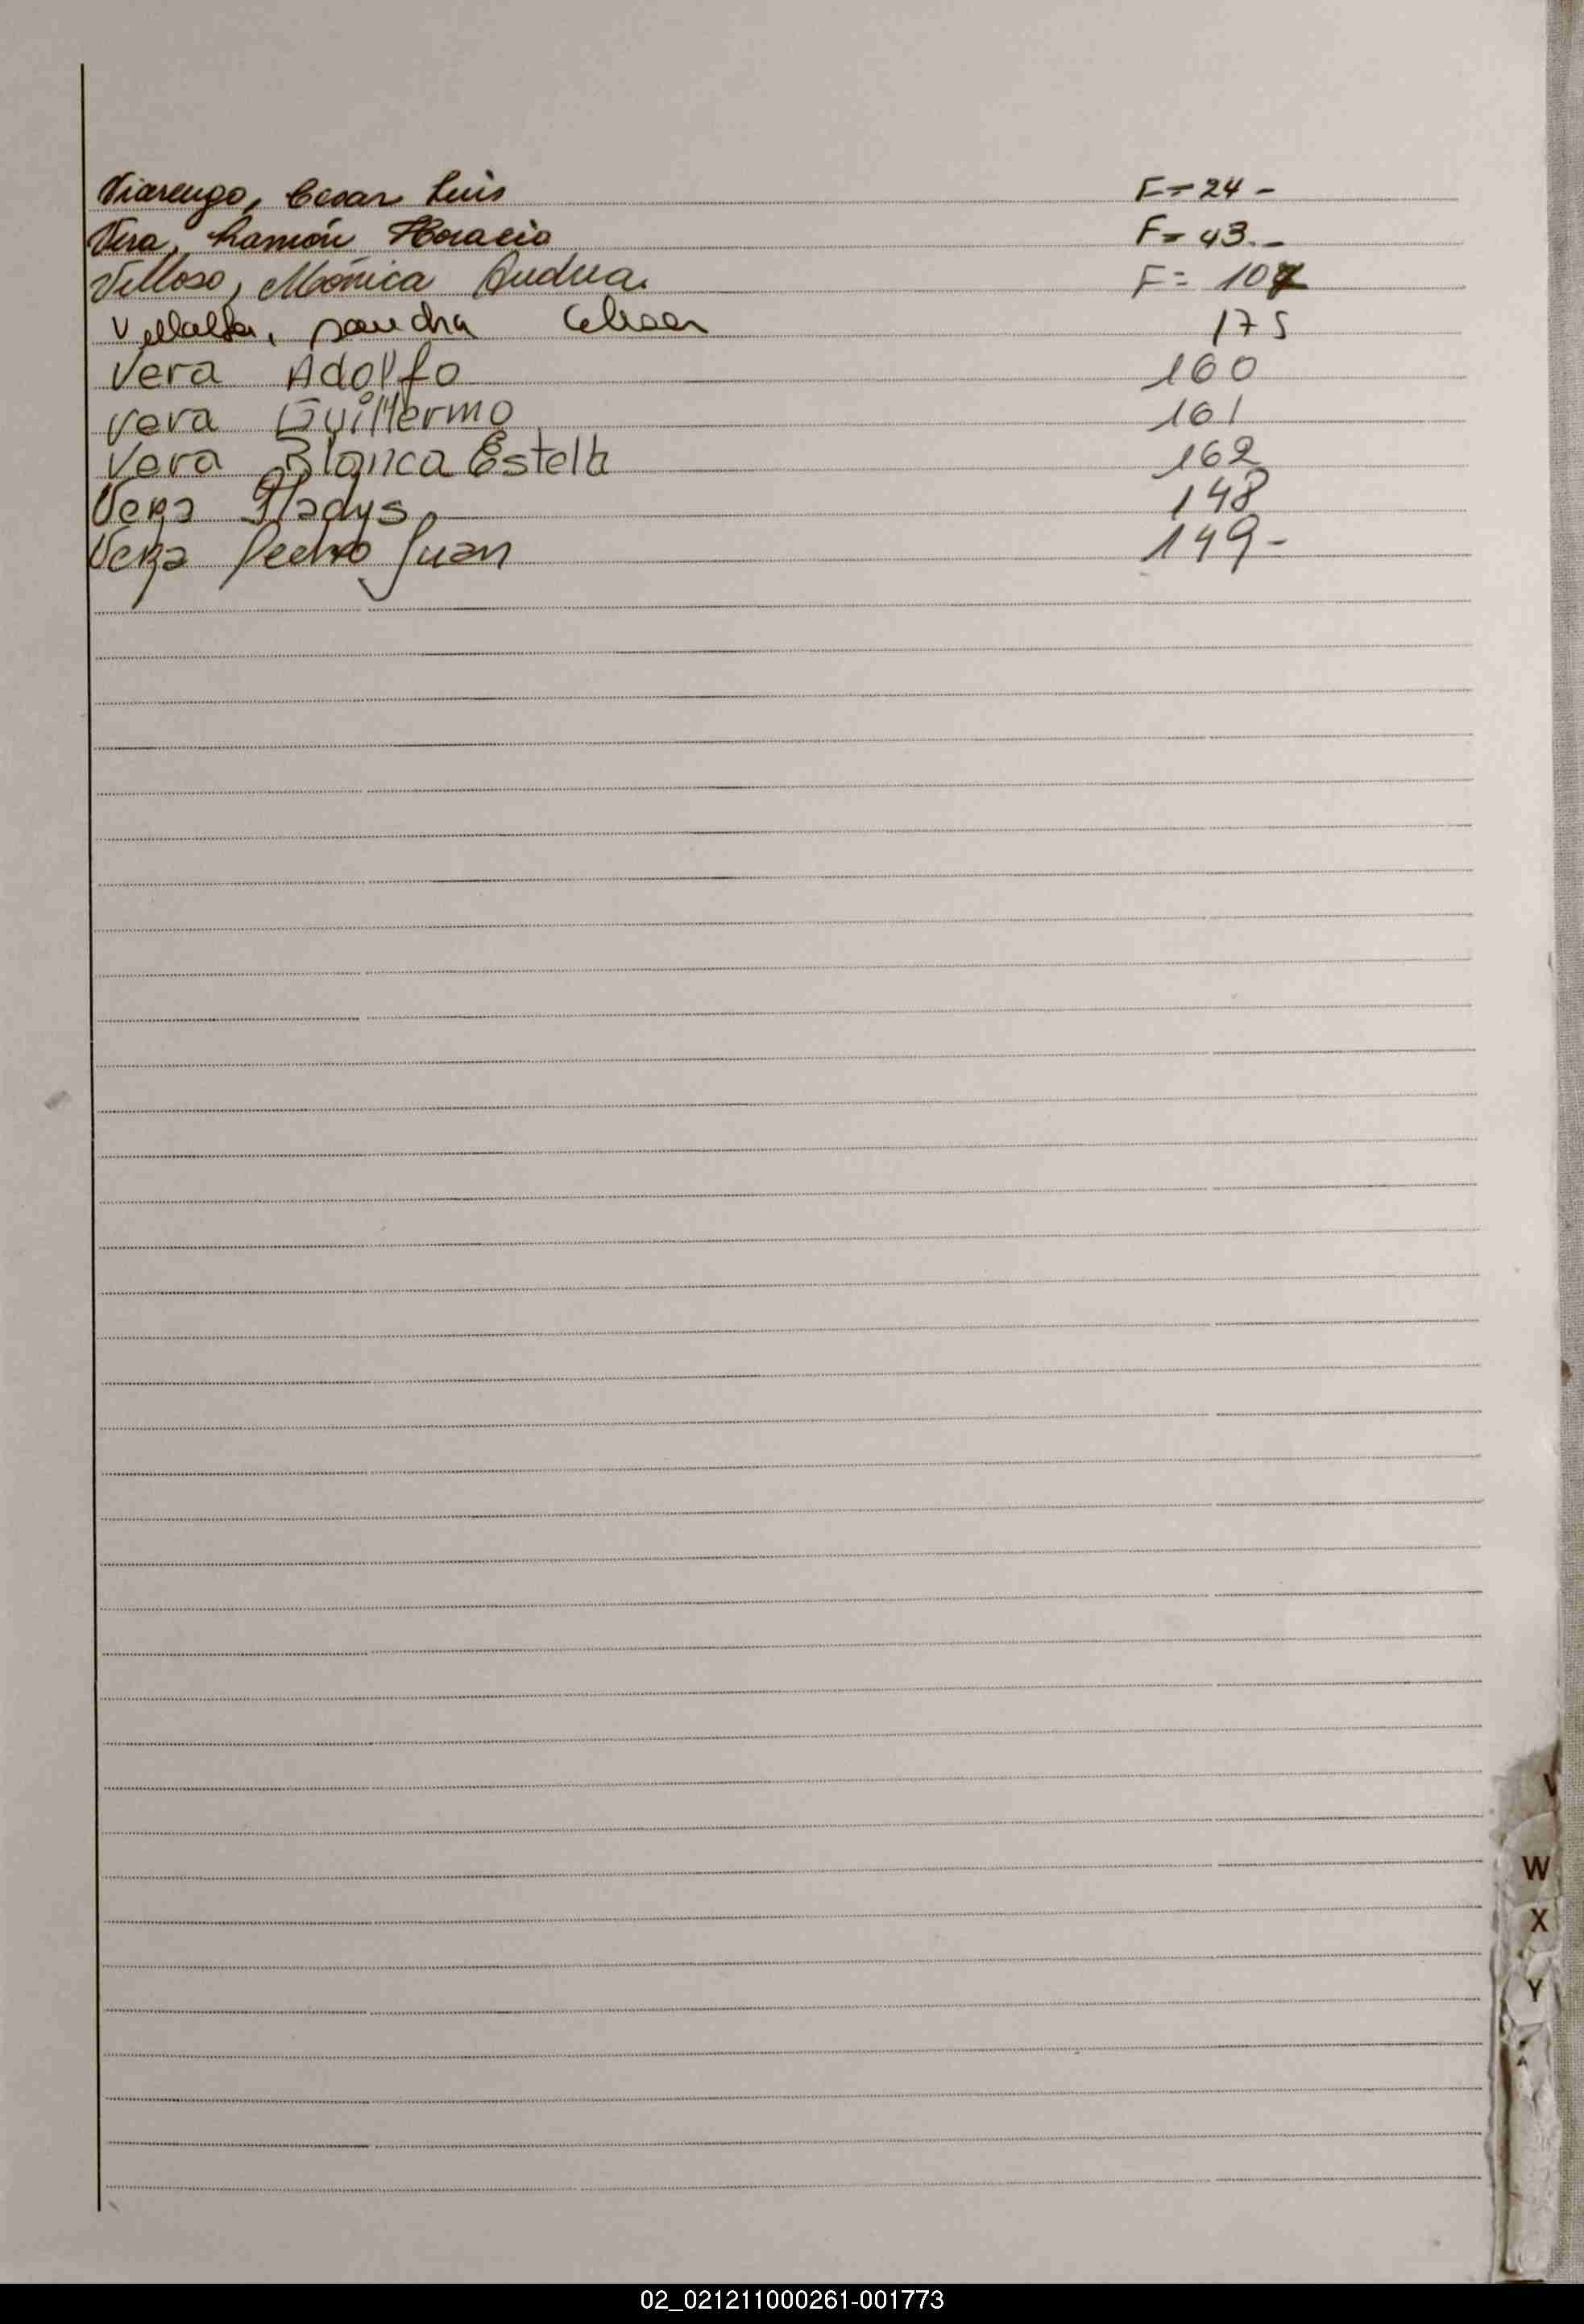 Viarengo, Cesar Luis F=24-
Vera, Ramón Horacio F=43.-
Velloso, Mónica Andrea. F=107
Villalba, Sandra 175
Vera Adolfo 160
Vera Guillermo 161
Vera Blanca Estela 162
Vega Gladys 148
Vega Pedro Juan 149-
V
W
X
Y
02_021211000261-001773